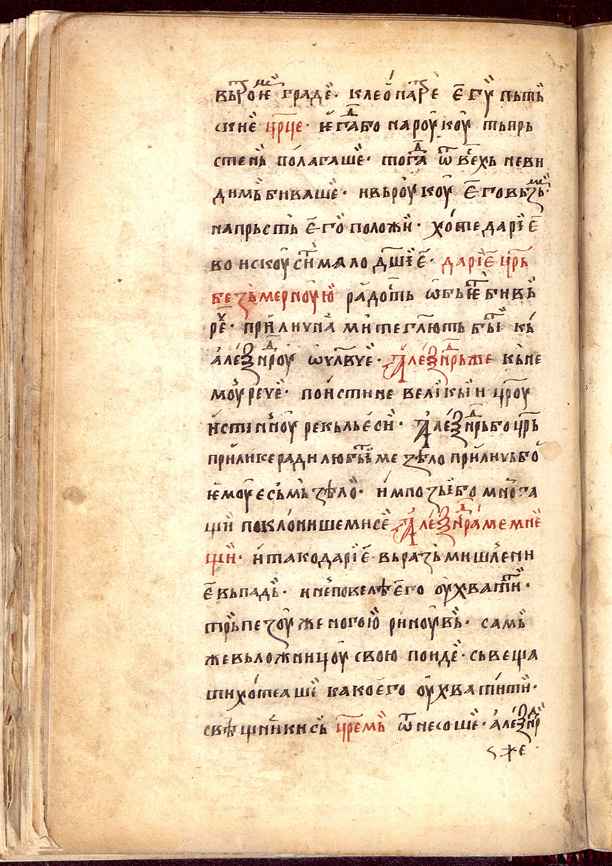 вьтрои҄ѥ градѣ · клеѡ́патрѣ е҆гѹ́пьть
скиѥ црⷭ҇це · и҆гдⷣабо нароукоу̀ тьпрь
стень по́лагаше · тогдⷣа ѿвсѣхь неви
димь биваше · ивьроукоу̀ е҆говьзьмь
напрьсть е҆го̀ положи̏ · хо́те дарі҆е
воискоу̀сти мало дш҃і҆е · дарі҆е црь
безьмерноу́ю радо́сть ѡ҆бьѥ бивь
рⷱ҇е · при́лична ми те глю́ть би́ти кь
але́ѯндⷣроу ѡ҆ улⷭ҇вуе · Але́ѯндⷣрьже кьне
моу̀ рече̏ · пои́стине велі́кыи црⷭ҇оу
и҆сти́нноу̀ рекьль еси̏ · Але́ѯндⷣрь бо црⷭ҇ь
при́лике ради любьⷡ҇ ме ѕѣло при́личь бо̀
ѥмоу̀ есьмь ѕѣло · и҆мпозьі бо мно́га
щи̏ покло́нише мисе Але́ѯндⷣра ме мне
щи̏ · и҆тако дарі҆е вьразьмишлени
е҆ вьпадь · и҆не́повелѣ е҆го ѹ҆хвати́ти ·
трьпезоу̀ же ногою̀ ри́ноувь · самь
же вьложницоу̀ свою поиде · сьвеща
ти хо́теаше како е҆го ѹ҆хватити ·
свѣщни́ки сь црⷭ҇емь ѿнесоше · але́ѯндⷣр